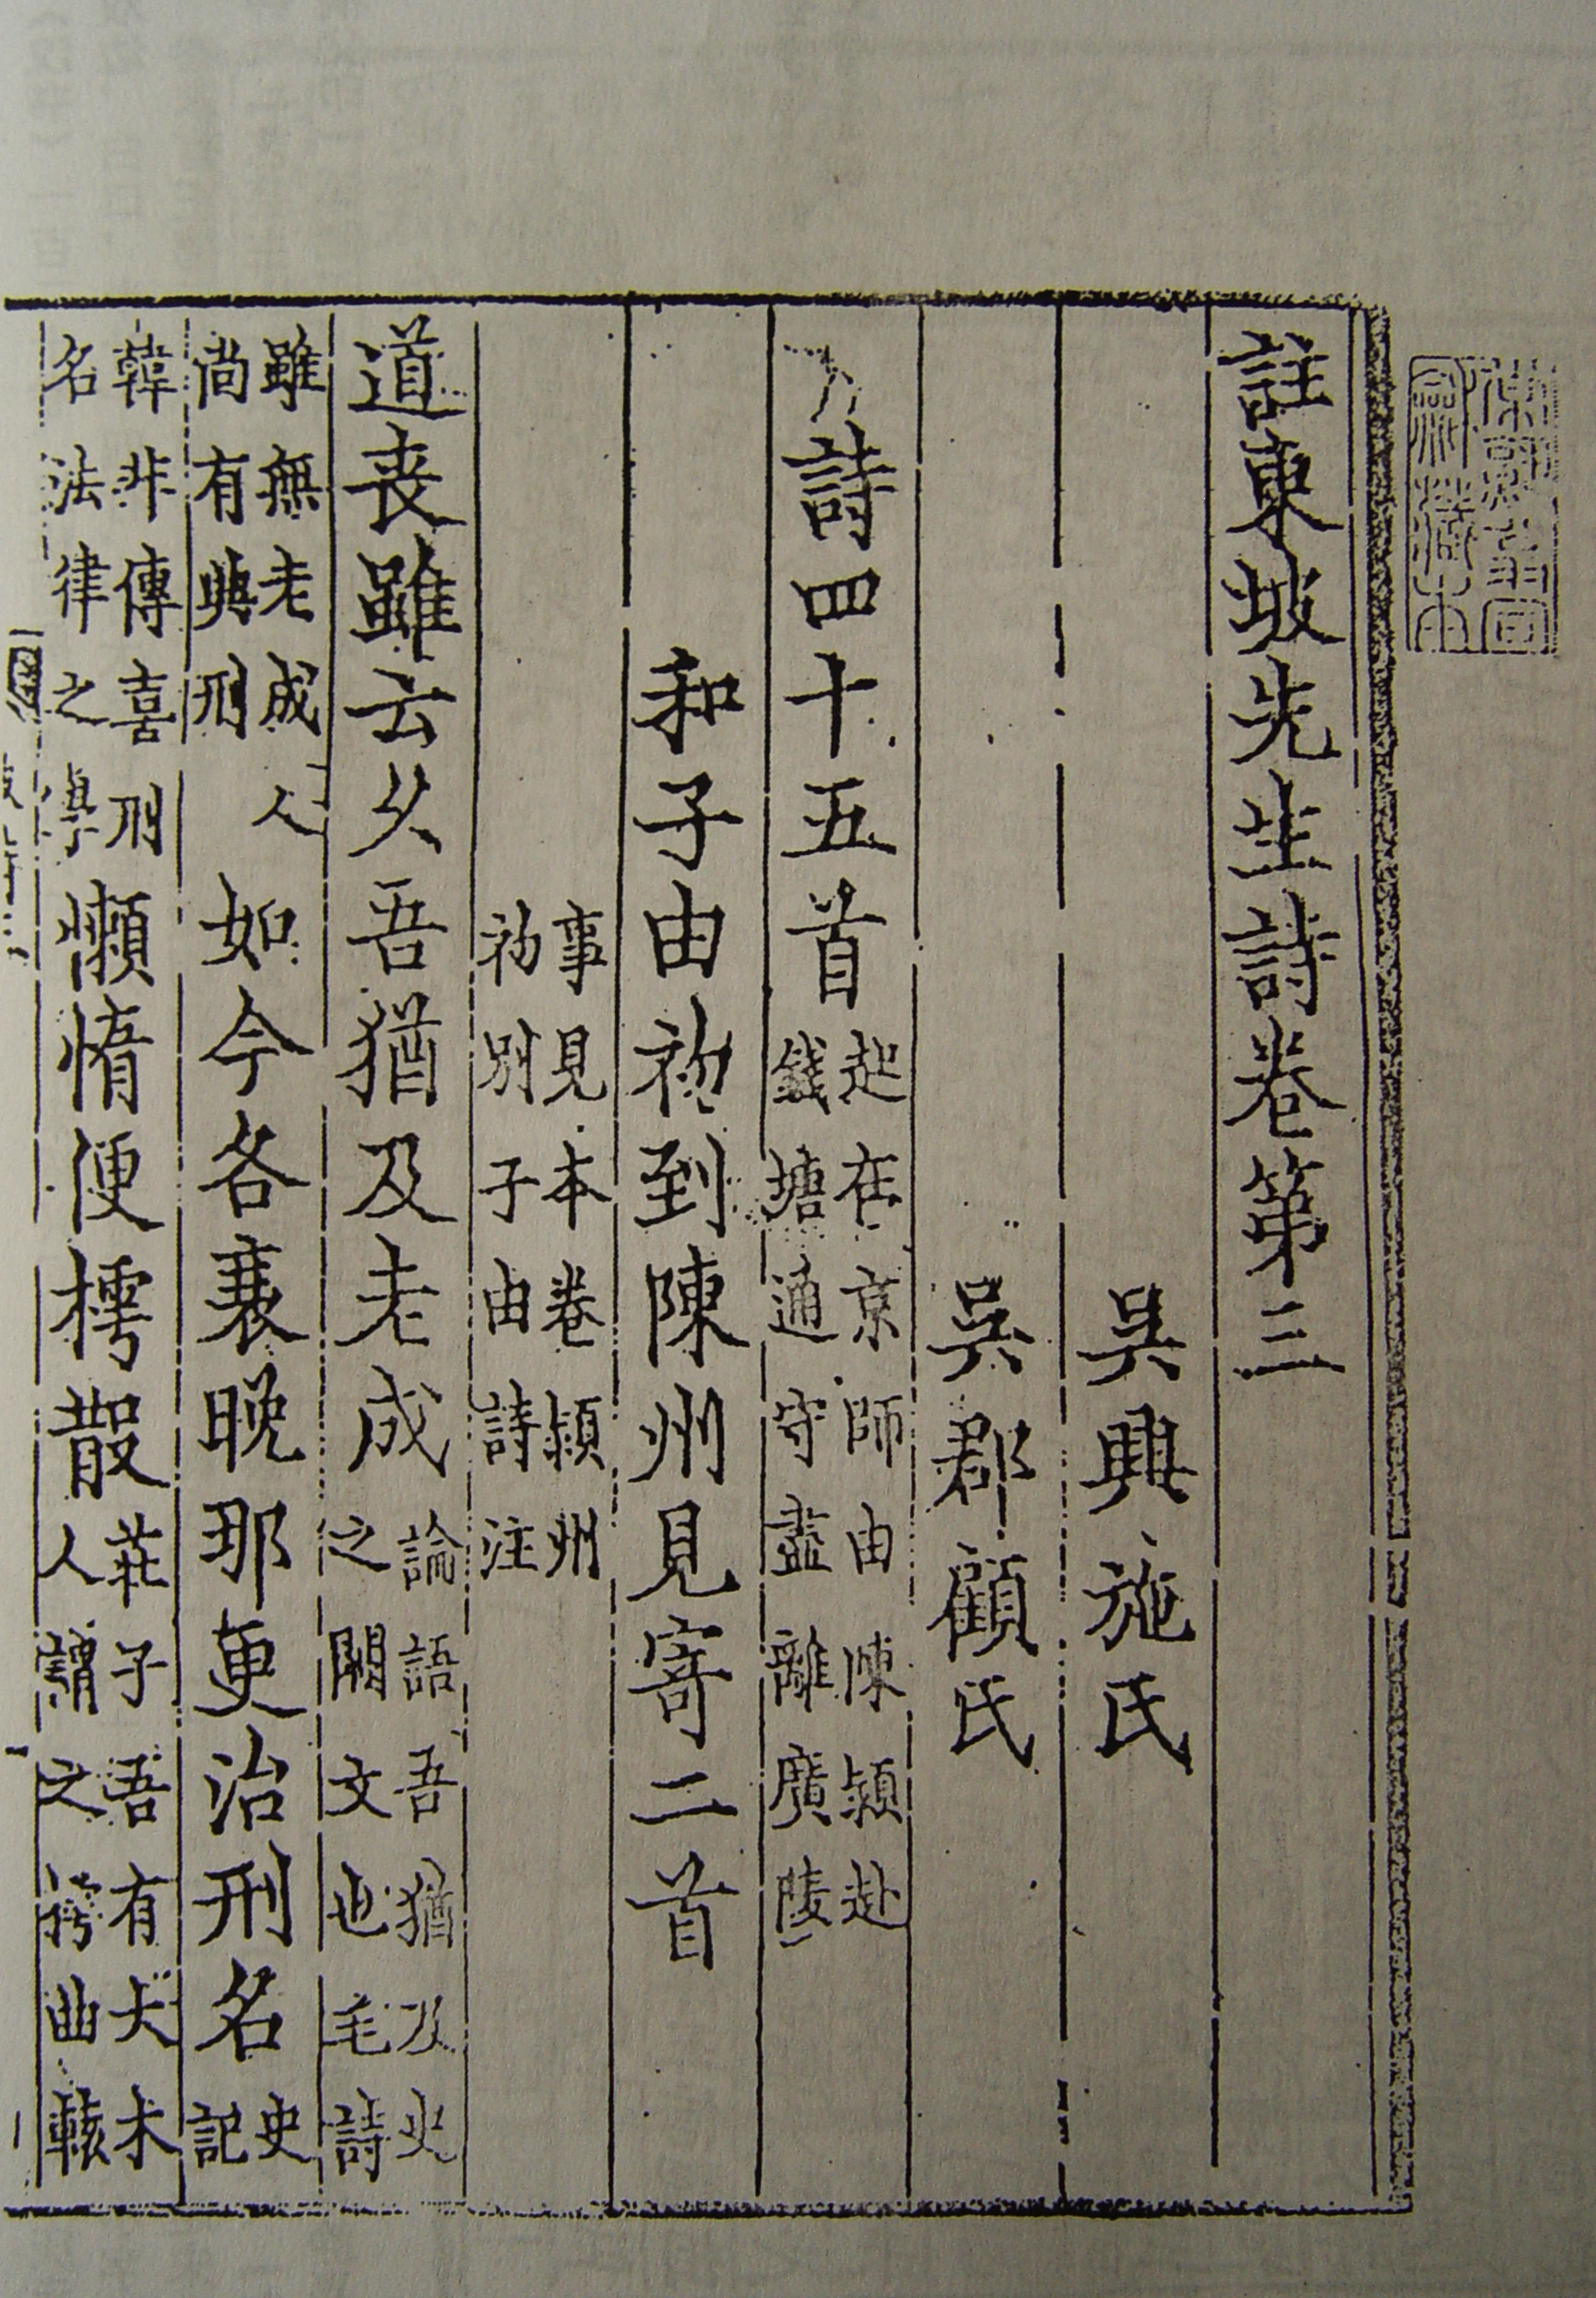 註東坡先生詩卷第三
吳興施氏
吳郡顧氏
詩四十五首起在京師由陳潁赴錢塘通守盡離廣陵
和子由初到陳州見寄二首
事見本卷潁州初別子由詩注
道喪雖云久吾猶及老成論語吾猶及史之闕文也毛詩
雖無老成人尚有典刑如今各衰晚那更治刑名史記
韓非傳喜刑名法律之學懶惰便樗散莊子吾有大木人謂之樗曲轅